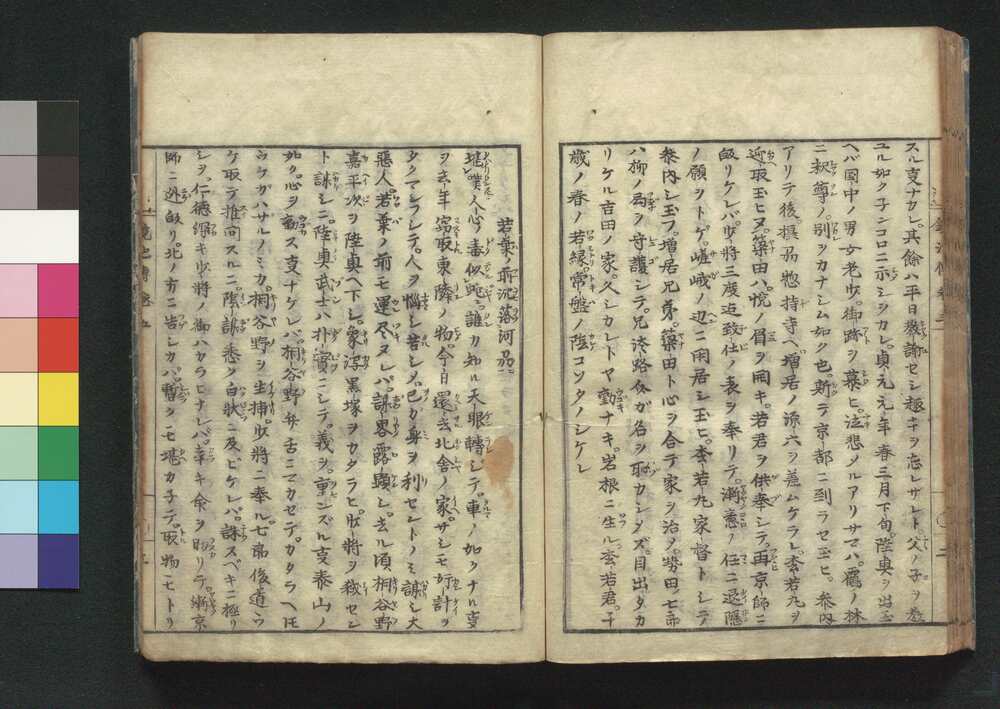 スル事ナカレ。其餘ハ平日教諭セシ趣キヲ忘レザレト。父ノ子ヲ教
ユル如ク子ンコロニ示シヲカレ。貞元元年春三月下旬。陸奥ヲ出玉
ヘバ国中ノ男女老少。御跡ヲ慕ヒ。泣悲メルアリサマハ。鶴ノ林
ニ釈尊ノ。別ヲカナシム如ク也。斯テ京都ニ到ラセ玉ヒ。参内
アリテ後。摂 惣持寺ヘ増居ノ源六ヲ差ムケラレ。枩若丸ヲ
迎取玉ヒヌ。簗田ハ悦ノ眉ヲ開キ。若君ヲ供奉シテ。再京師ニ
皈リケレバ。少將三度迄致仕ノ表ヲ奉リテ。漸意ノ任ニ退隠
ノ願ヲトゲ。嵯峨ノ辺ニ閑居シ玉ヒ。枩若丸家督トシテ
参内シ玉フ。増居兄弟。簗田ト心ヲ合テ家ヲ治ノ。勢田ノ七郎
ハ柳ノ局ヲ守護シテ。兄淡路 ガ名ヲ取カシタズ。目出タカ
リケル吉田ノ家。久シカレトヤ動ナキ。岩根ニ生ル枩若君。千
歳ノ春ノ若緑。常盤ノ陰コソタノシケレ
若葉ノ前沈落河品二
堪嘆人心毒似蛇。誰カ知ル天眼轉シテ。車ノ如クナル事
ヲ去年窃取東隣ノ物。今日還去北舎ノ家。サシモ奸計ヲ
タクマシフシテ。人ヲ悩シ苦シメ。己ガ身ヲ利セントノミ謀シ大
悪人。若葉ノ前モ運尽ヌレバ。謀畧露顕シ。去ル頃桐谷野
嘉平次ヲ陸奥ヘ下シ。象潟黒塚ヲカタラヒ。少將ヲ殺セン
ト謀シニ。陸奥武士ハ朴實ニシテ。義ヲ重ンズル事泰山ノ
如ク。心ヲ動ス事ナケレバ。桐谷野弁舌ニマカセテ。カタラヘ圧
ウケガハサルノミカ。桐谷野ヲ生捕。少將ニ奉ル。七郎後道ウ
ケ取テ推問スルニ。陰謀悉ク白状ニ及ビケレバ。誅スベキニ極リ
シヲ。仁徳 キ少將ノ御ハカラヒナレバ。辛キ命ヲ助リテ。漸京
師ニ迯皈リ。北ノ方ニ告シカバ。暫クモ堪カ子テ。取物モトリ